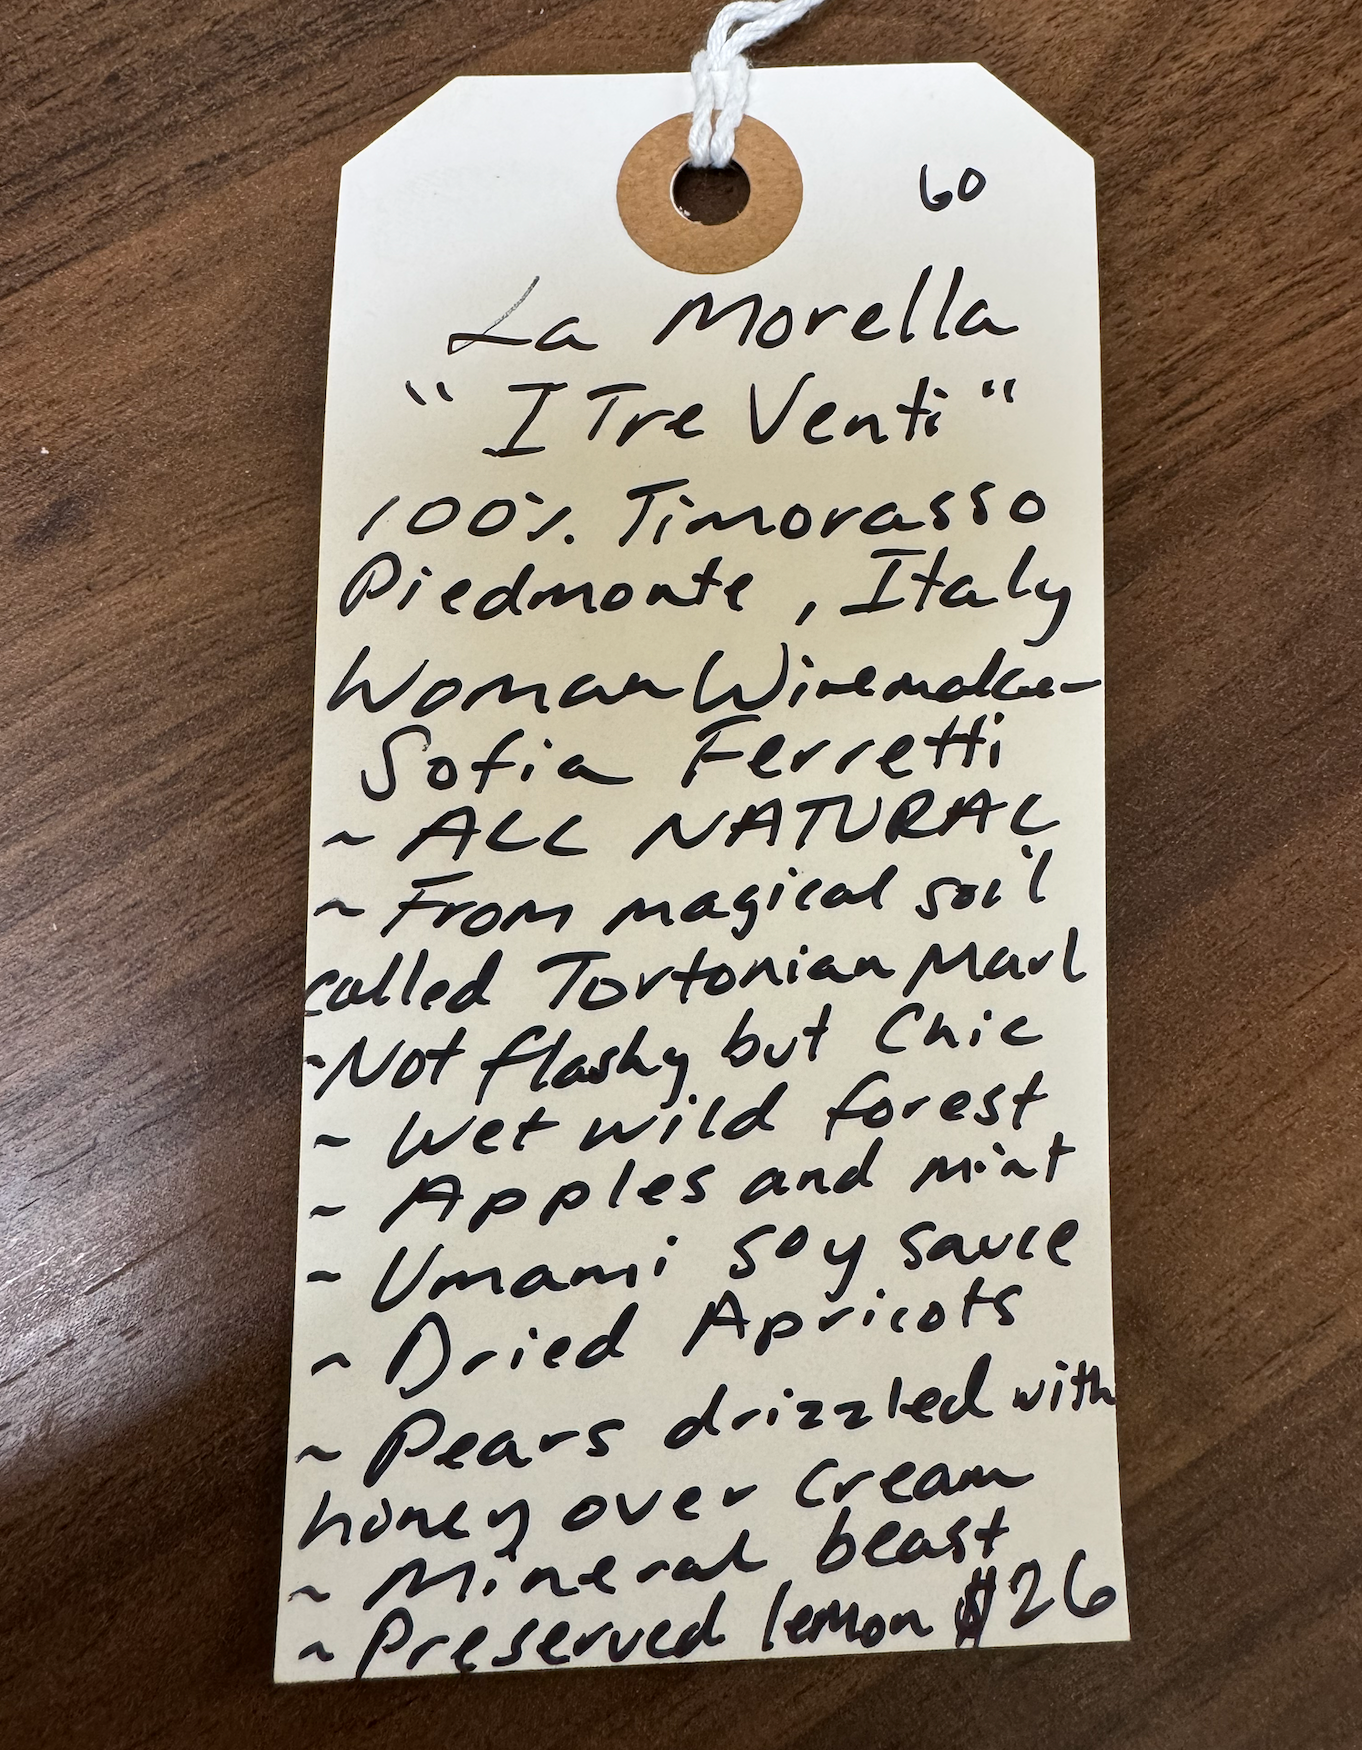 60
La Morella
"I Tre Venti"
100% Timorasso
Piedmonte, Italy
Woman Winemaker
Sofia Ferretti
~ ALL NATURAL
~ From magical soil
called Tortonian Marl
~ Not flashy but Chic
~ Wet wild forest
~ Apples and mint
~ Umami soy sauce
~ Dried Apricots
~ Pears drizzled with
honey over cream
~ Mineral beast
~ Preserved lemon $26